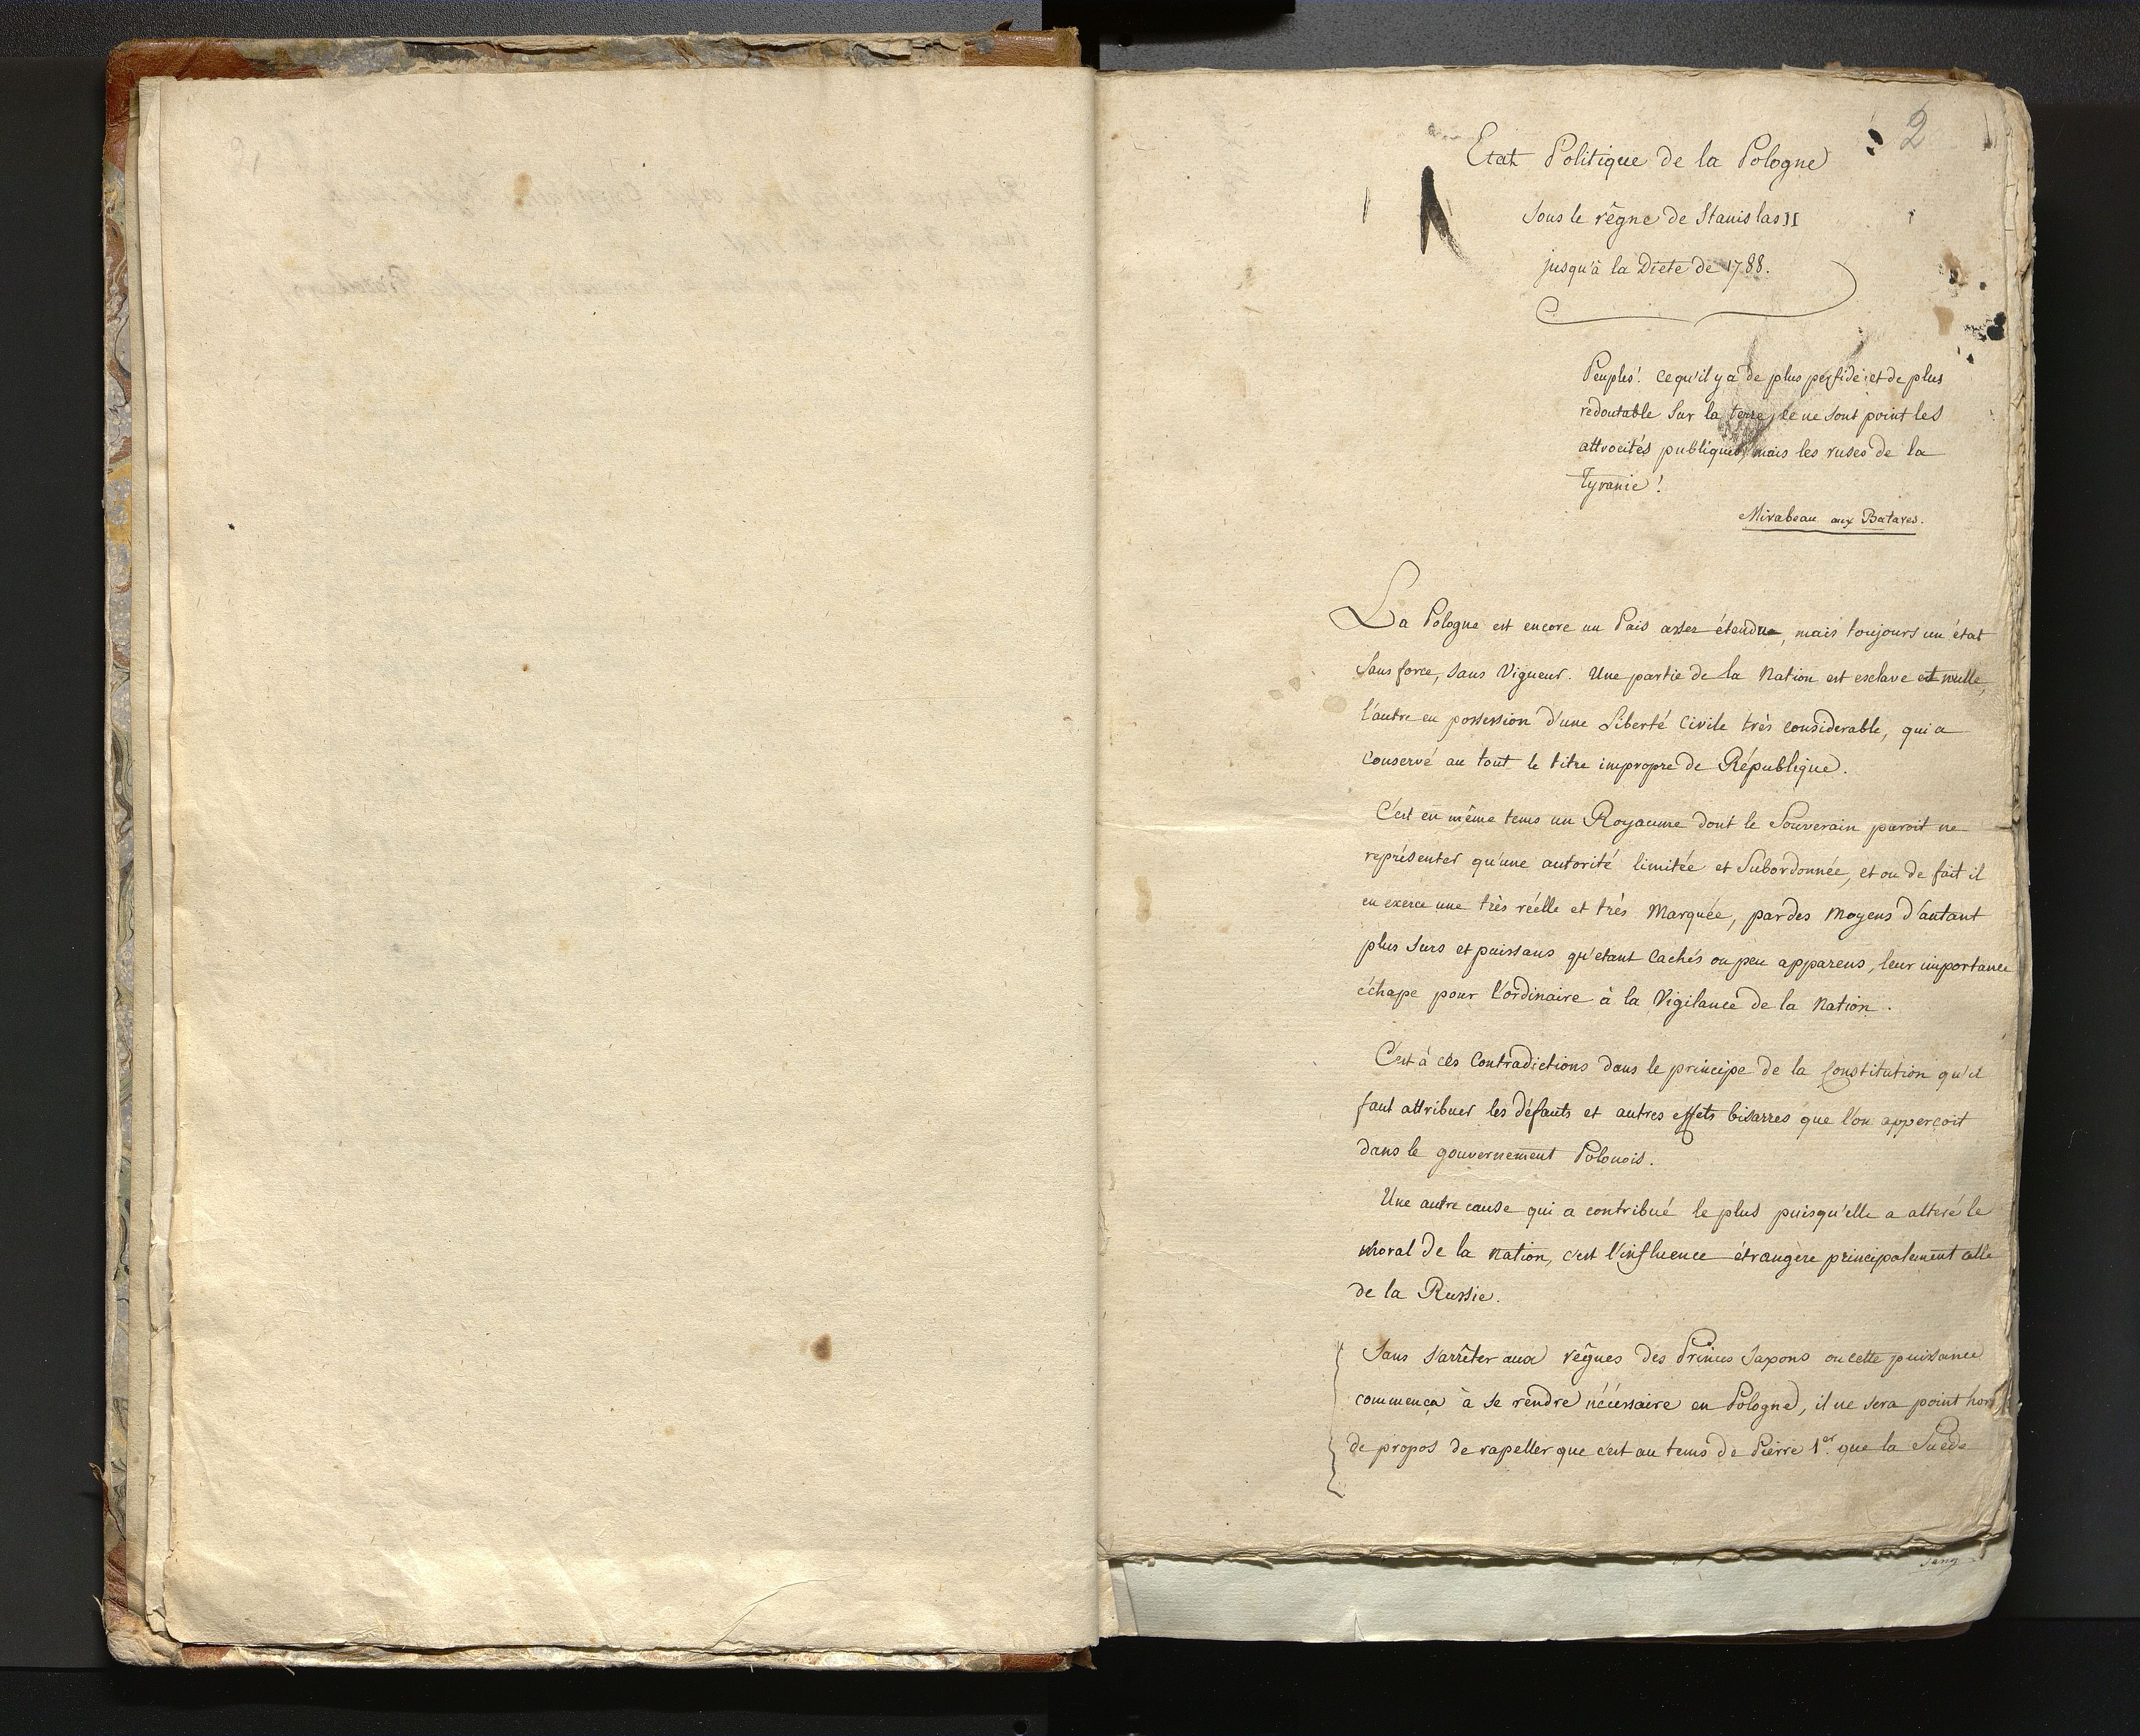 2
Etat Politique de la Pologne
Sous le règne de Stanislas II
jusqu'à la Diete de 1788.
Peuples! ce qu'il y a de plus perfide et de plus
redoutable sur la terre, ce ne sont point les
attrocités publiques, mais les ruses de la
Tyranie!
Mirabeau aux Bataves.
La Pologne est encore un Païs assez étendu, mais toujours un état
sans force, sans Vigueur. Une partie de la Nation est esclave et nulle,
l'autre en possession d'une Liberté Civile très considerable, qui a
conservé au tout le titre impropre de République.
C'est en même tems un Royaume dont le Souverain paroit ne
représenter qu'une autorité limitée et Subordonnée, et ou de fait il
en exerce une très réelle et très Marquée, par des Moyens d'autant
plus surs et puissans qu'etant Cachés ou peu apparens, leur importance
échape pour l'ordinaire à la Vigilance de la Nation.
C'est à ces Contradictions dans le principe de la Constitution qu'il
faut attribuer les défauts et autres effets bisarres que l'on apperçoit
dans le gouvernement Polonois.
Une autre cause qui a contribué le plus puisqu'elle a alteré le
moral de la nation, c'est l'influence étrangère principalement celle
de la Russie.
Sans s'arrêter aux règnes des Princes Saxons ou cette puissance
commença à se rendre nécéssaire en Pologne, il ne sera point hors
de propos de rapeller que c'est au tems de Pierre 1er que la Suède